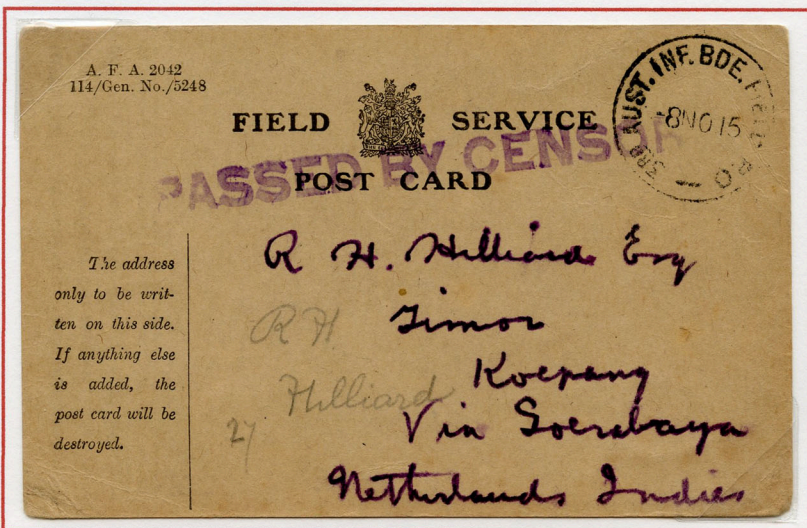 A. F. A. 2042
114/Gen. No./5248
FIELD SERVICE
POST CARD
PASSED BY CENSOR
3RD AUST. INF. BDE. FIELD P.O
-8 NO 15
The address
only to be writ-
ten on this side.
If anything else
is added, the
post card will be
destroyed.
R H. Hilliard Esq
Timor
Koepang
Via Soerabaya
Netherlands Indies
R H
Hilliard
27